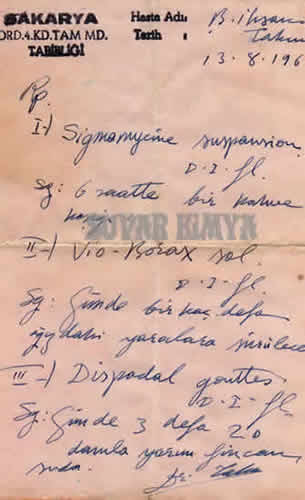 SAKARYA
ORD.4.KD.TAM MD.
TABİBLİĞİ
Hasta Adı
Tarih :
B. İhsan
13.8.196
Rp.
I-) Sigmamycine suspansion
D.I. fl.
Sg: 6 saatte bir kahve
kaşığı
DUVAR KİMYA
II-) Vio-Borax sol.
D.I. fl.
Sg: Günde bir kaç defa
ağızdaki yaralara sürülecek
III-) Dispadal gouttes
D-I-fl.
Sg: Günde 3 defa 20
damla yarım fincan
suda.
Dr.